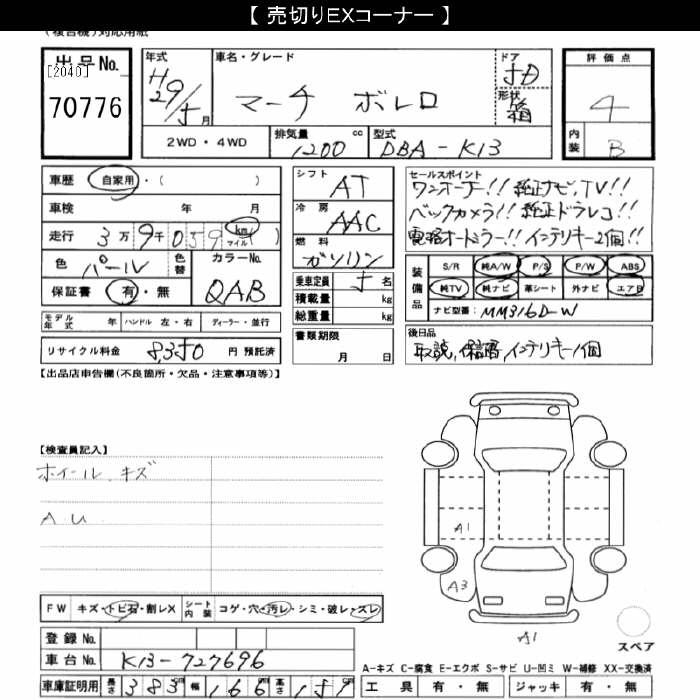 【 売切りEXコーナー 】
(複合機)対応用紙
出品No.
[2040]
70776
年式
H29/5月
車名・グレード
マーチ ボレロ
ドア
5D
形状
箱
評価点
4
内装
B
2WD・4WD
排気量
1200 cc
型式
DBA-K13
車歴 自家用・( )
車検 年 月
走行 3万9千059 km マイル
色 パール
色替
カラーNo.
QAB
保証書 有・無
モデル年式 年 ハンドル 左・右 ディーラー・並行
リサイクル料金 8,350 円 預託済
シフト
AT
冷房
AAC
燃料
ガソリン
乗車定員 5 名
積載量 kg
総重量 kg
書類期限
月 日
セールスポイント
ワンオーナー!! 純正ナビ,TV!!
バックカメラ!! 純正ドラレコ!!
電格オートミラー!! インテリキー2個!!
装備品
S/R 純A/W P/S P/W ABS
純TV 純ナビ 革シート 外ナビ エアB
ナビ型番: MM316D-W
後日品
取説,保証書,インテリキー1個
【出品店申告欄(不良箇所・欠品・注意事項等)】
【検査員記入】
ホイール キズ
AU
A1
A3
A1
スペア
FW キズ・トビ石・割レX
シート内装 コゲ・穴・汚レ・シミ・破レ・スレ
登録No.
車台No. K13-727696
車庫証明用 長さ 383 幅 166 高さ 159
A-キズ C-腐食 E-エクボ S-サビ U-凹ミ W-補修 XX-交換済
工具 有・無 ジャッキ 有・無